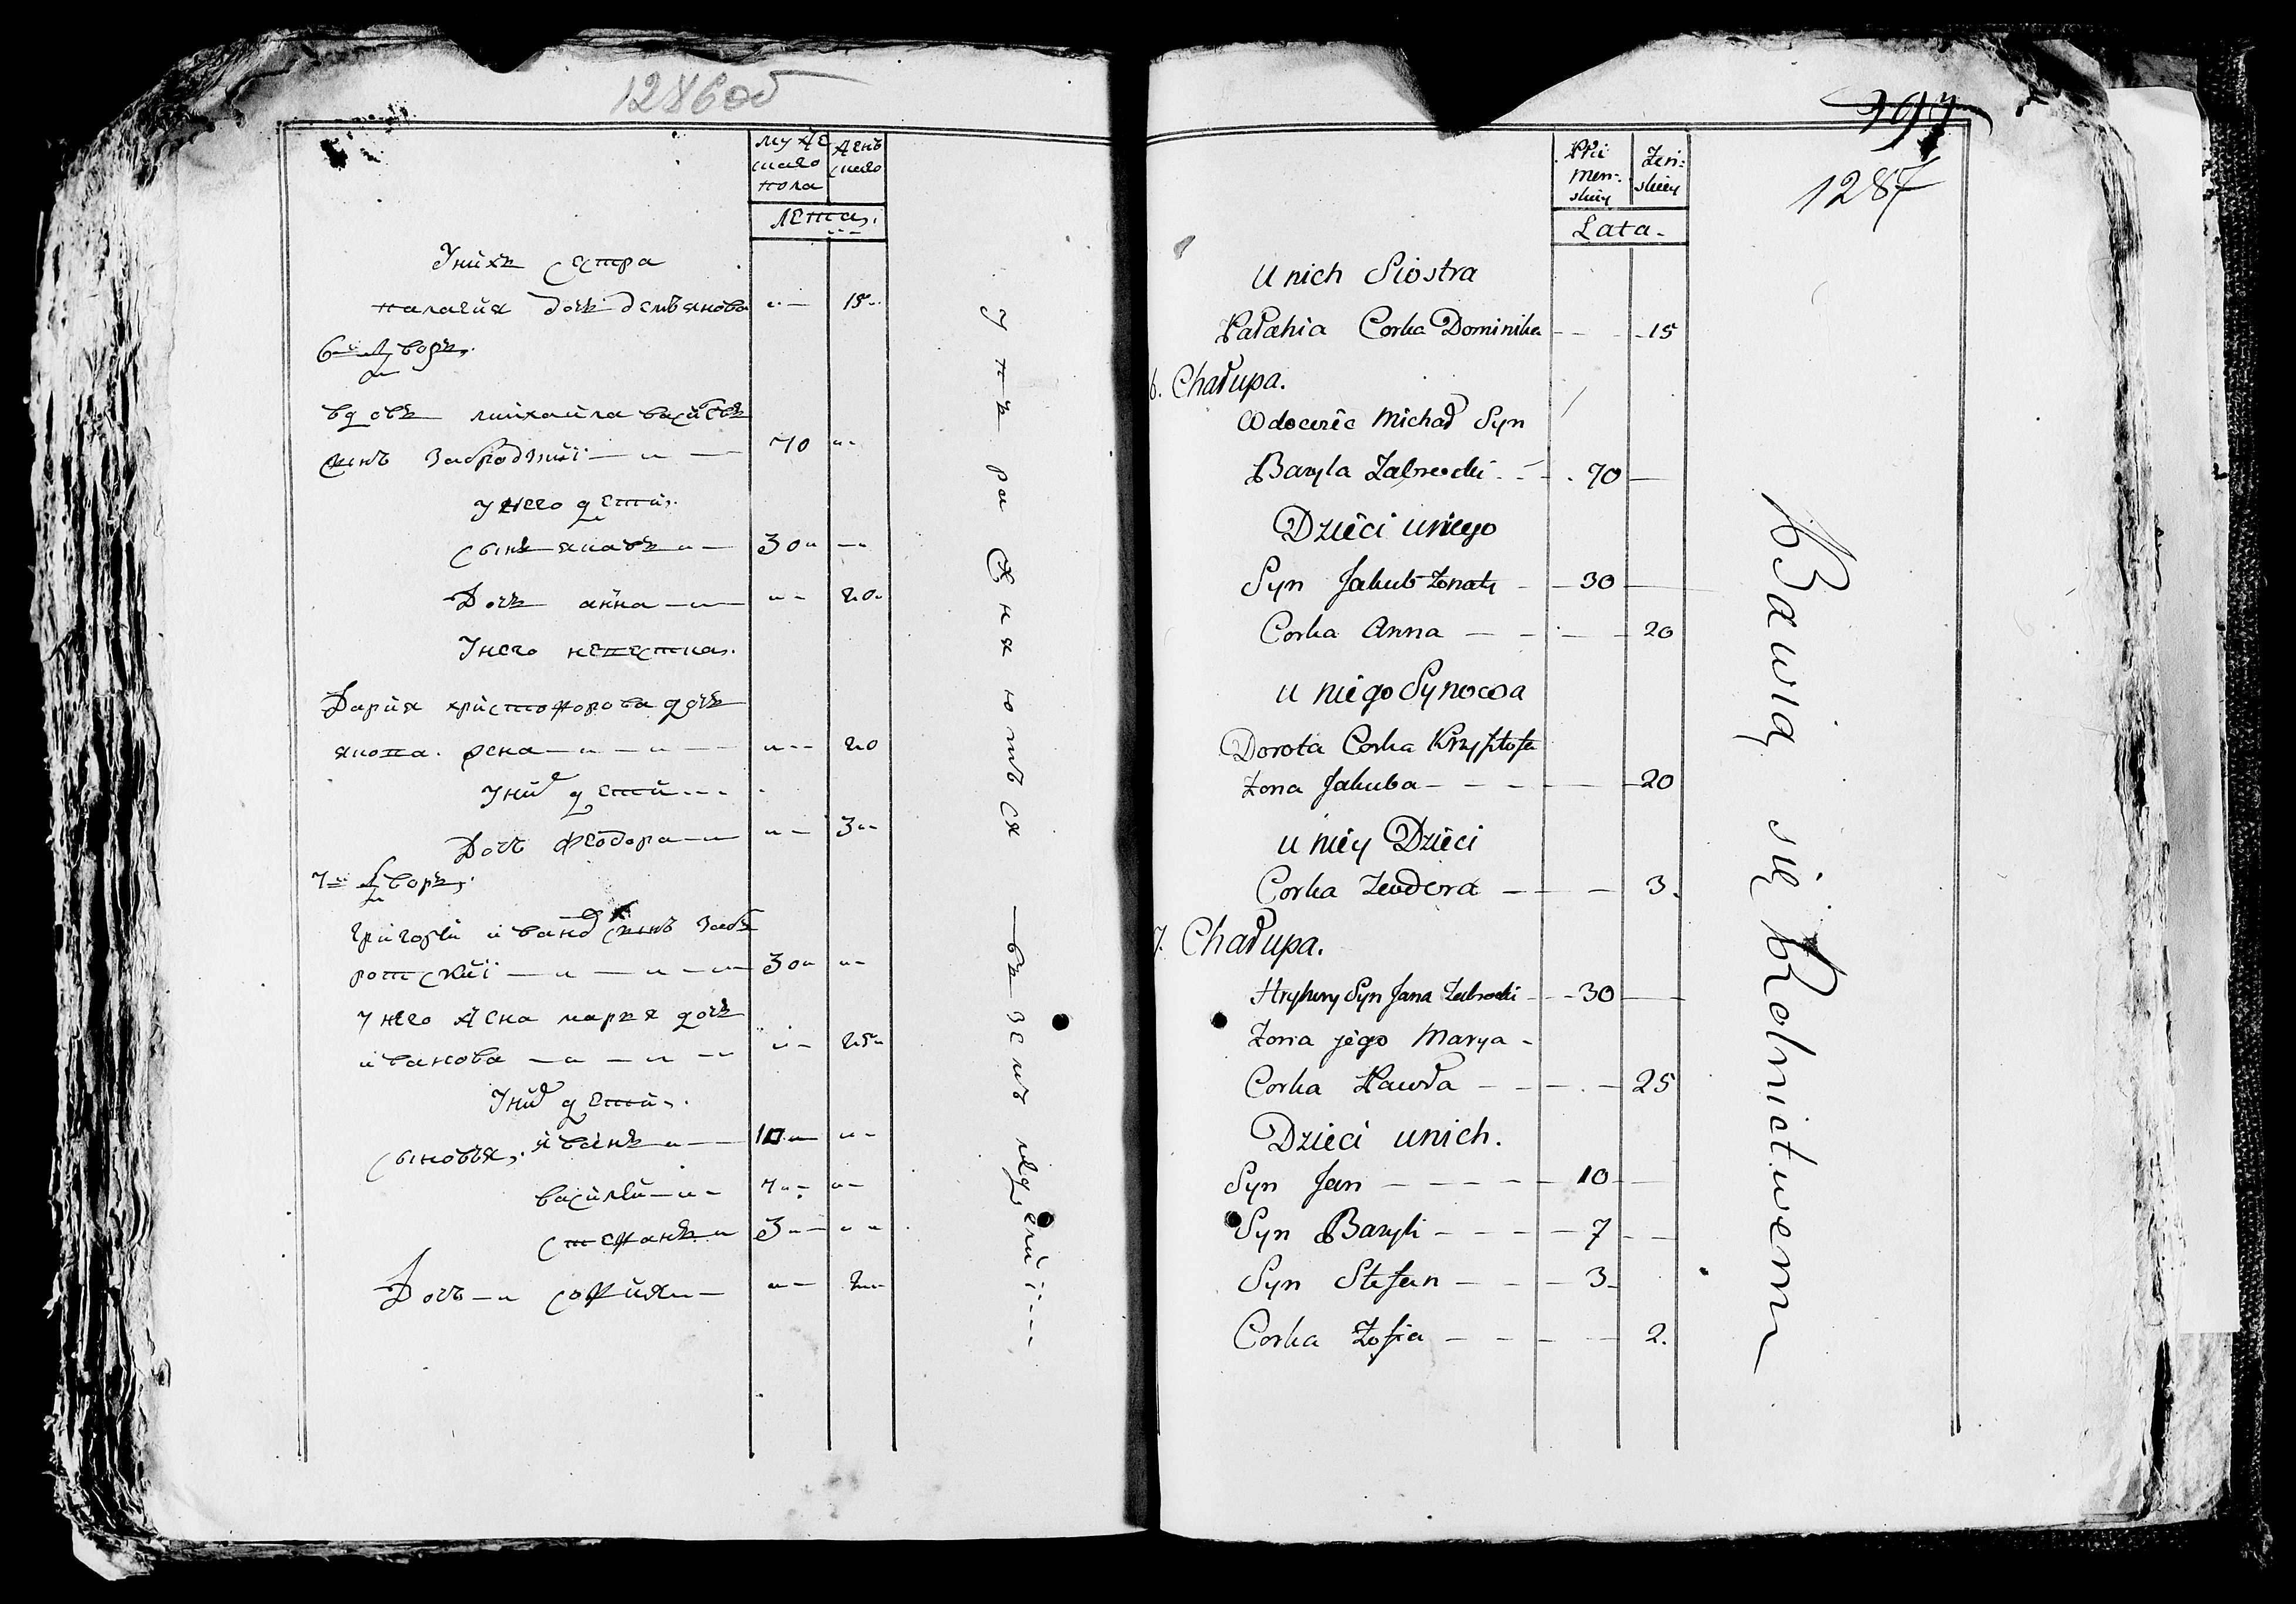 1286об
муже
скаго
пола
женъ
скаго
лета.
У нихъ сестра
палагия дочь демьянова "— 15"
6-й дворъ.
вдовъ михайла васильевъ
сынъ Забродзкий — " — 70 "-
У него дети.
сынъ яковъ " — 30" —
Дочь анна — " — "- 20"
У него невестка.
Дария христофорова дочь
якова жена — " — " — "- 20
У ней дети ---
Дочь феодора — " "- 3"-
7-й дворъ.
григорий ивановъ сынъ Заб
ротский — " — " — " 30" "-
У него жена марья дочь
иванова — " — " — "- 25"
У нихъ дети.
сыновья, иванъ " — 10" "-
василий — " - 7"- "-
стефанъ " 3"- "-
Дочь — " софия " — "- 2"-
упражняются — въ земледелии
1287
Płci
męn-
skiey
Zeń-
skiey
Lata.
U nich Siostra
Pałahia Corka Dominika — 15
6. Chałupa.
Wdowiec Michał Syn
Bazyla Zabrocki - - 70 —
Dzieci u niego
Syn Jakub Zonaty - 30 —
Corka Anna — - — 20
u niego Synowa
Dorota Corka Krzysztofa
Zona Jakuba - - - — 20
u niey Dzieci
Corka Teodora — — 3.
7. Chałupa.
Hryhory Syn Jana Zabrocki - 30 —
Zona jego Marya -
Corka Pawła - - - — 25
Dzieci u nich.
Syn Jan - - - - 10 —
Syn Bazyli - - - 7 - -
Syn Stefan - - - 3 -
Corka Zofia - - - - 2.
Bawią się Rolnictwem